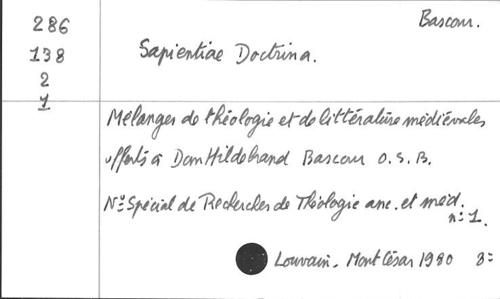 286
138
2
1
Bascour.
Sapientiae Doctrina.
Mélanges de théologie et de littérature médiévales
offerts à Dom Hildebrand Bascour O.S.B.
Nº Spécial de Recherches de Théologie anc. et méd.
nº 1.
Louvain, Mont César 1980 8º